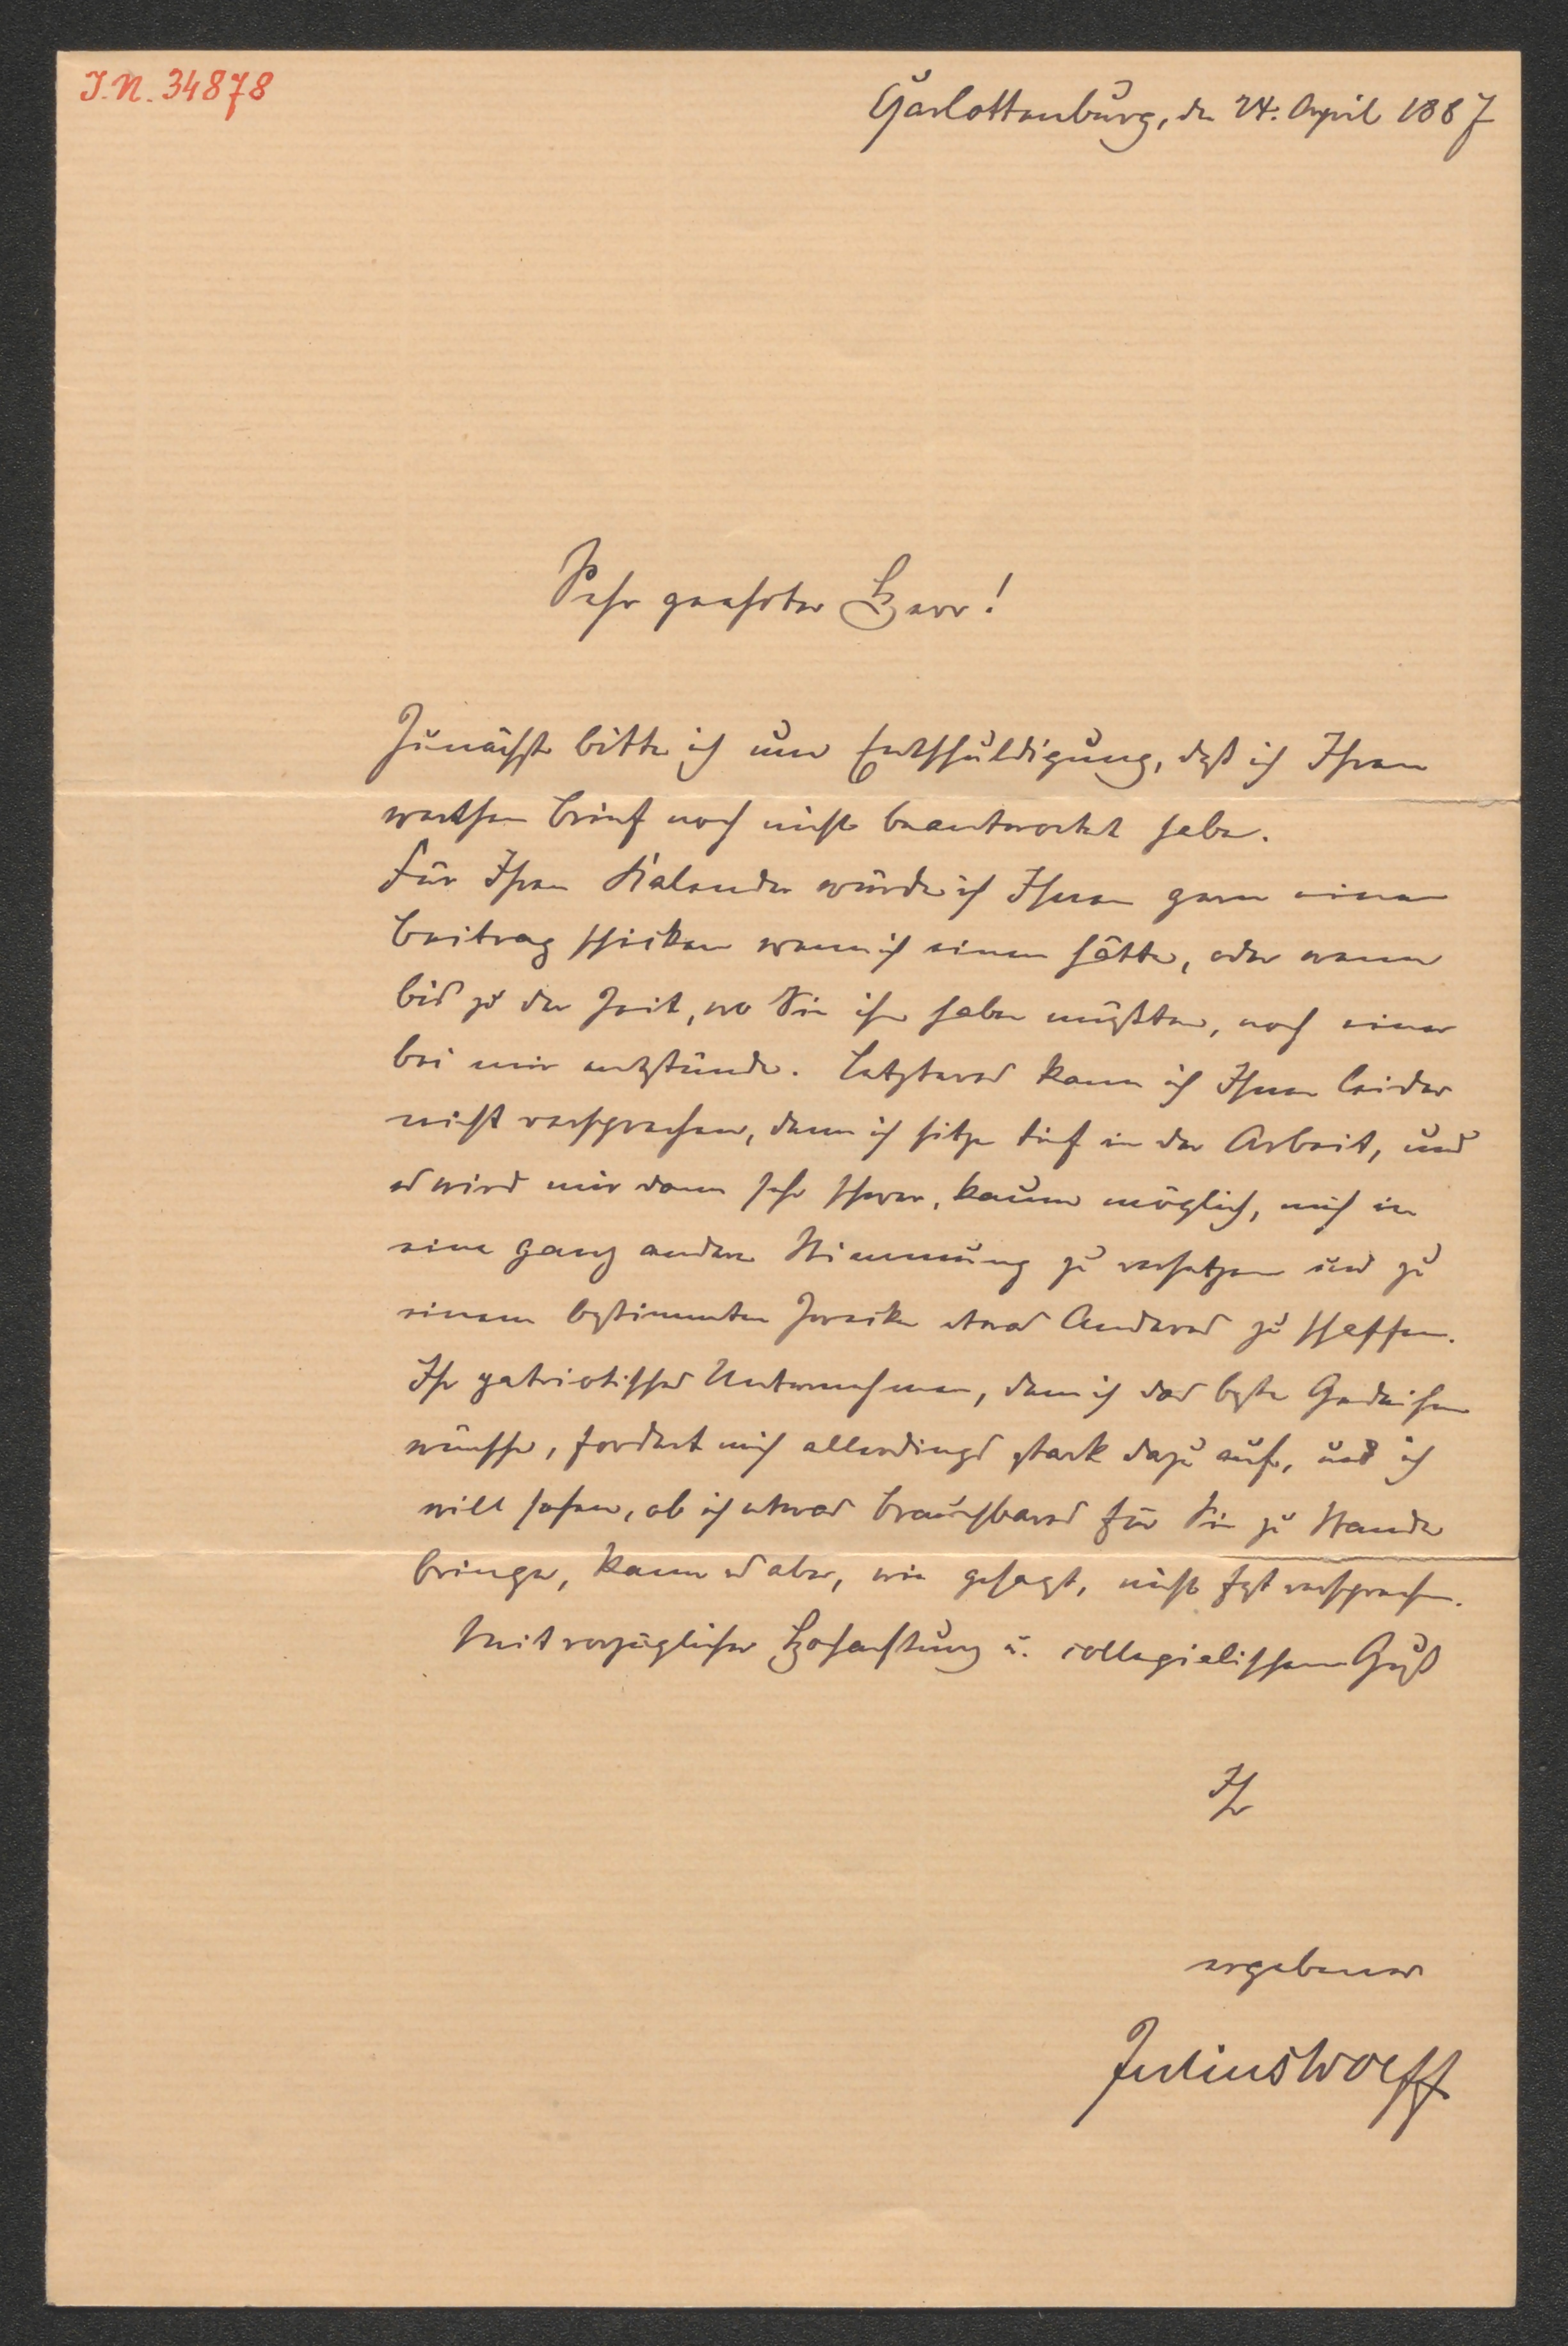 I.N. 34878
Charlottenburg, den 24. April 1887
Sehr geehrter Herr!
Zunächst bitte ich um Entschuldigung, daß ich Ihren
werthen Brief noch nicht beantwortet habe.
Für Ihren Kalender würde ich Ihnen gern einen
Beitrag schicken wenn ich einen hätte, oder wenn
bis zu der Zeit, wo Sie ihn haben müßten, noch einer
bei mir entstünde. Letzteres kann ich Ihnen leider
nicht versprechen, denn ich sitze tief in der Arbeit, und
es wird mir dann sehr schwer, kaum möglich, mich in
eine ganz andere Stimmung zu versetzen und zu
einem bestimmten Zwecke etwas Anderes zu schaffen.
Ihr patriotisches Unternehmen, dem ich das beste Gedeihen
wünsche, fordert mich allerdings stark dazu auf, und ich
will sehen, ob ich etwas Brauchbares für Sie zu Stande
bringe, kann es aber, wie gesagt, nicht fest versprechen.
Mit vorzüglicher Hochachtung u. collegialischem Gruß
Ihr
ergebener
Julius Wolff